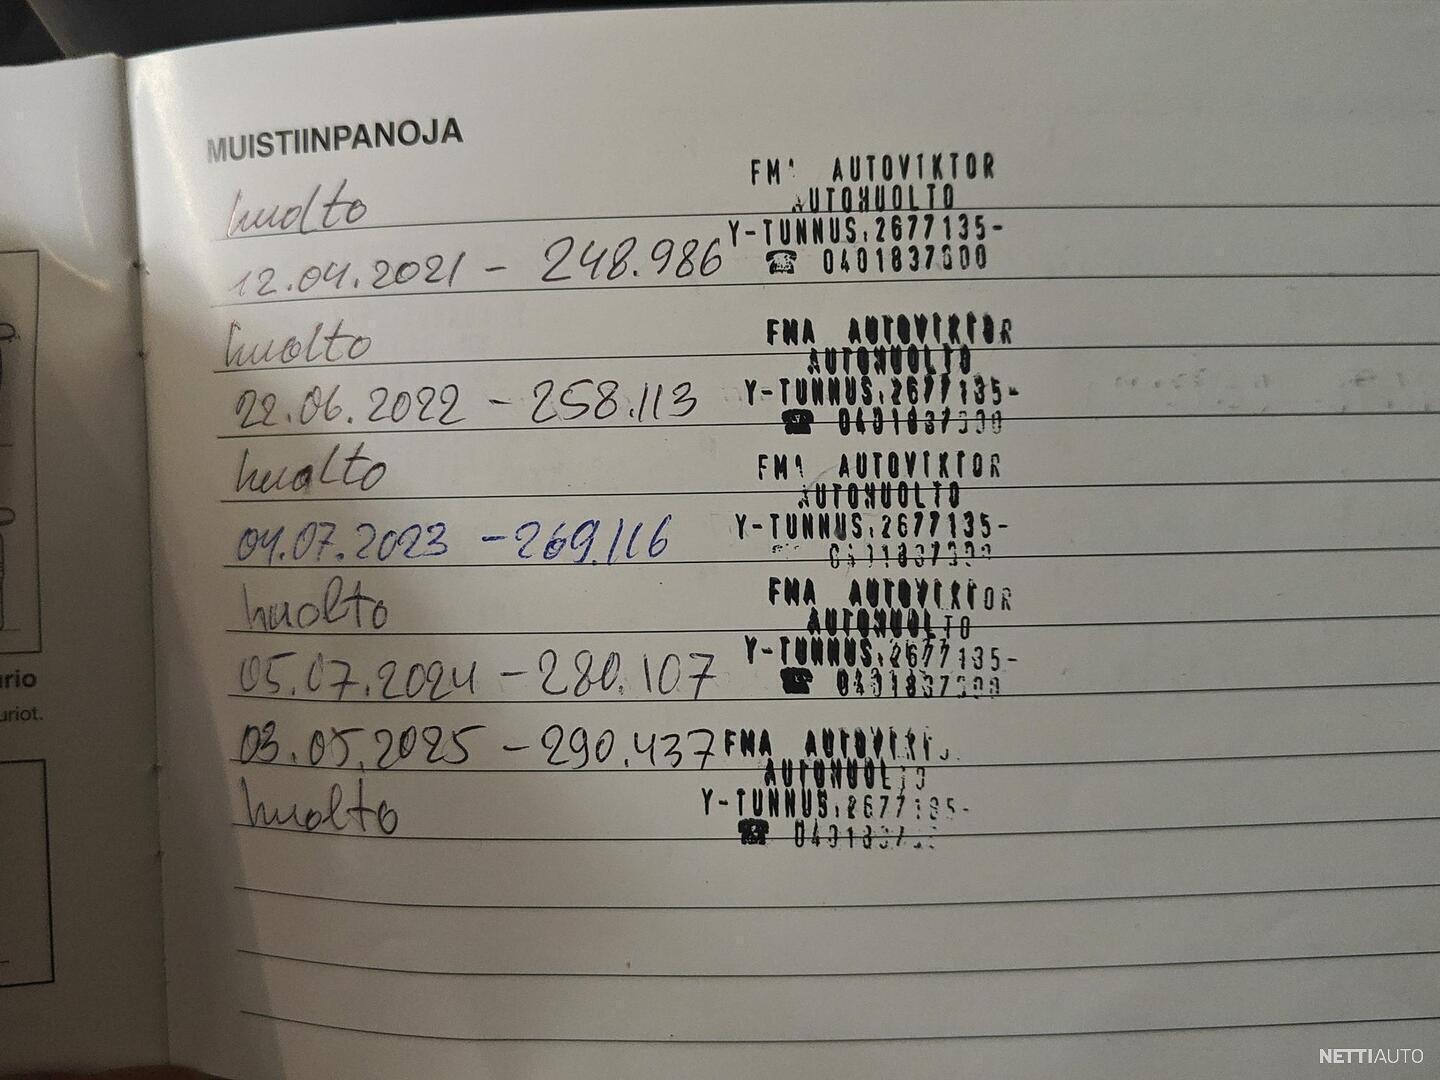 MUISTIINPANOJA
huolto
FM AUTOVIKTOR
AUTOHUOLTO
Y-TUNNUS:2677135-
12.04.2021 - 248.986
☎ 0401837000
huolto
FMA AUTOVIKTOR
AUTOHUOLTO
Y-TUNNUS:2677135-
22.06.2022 - 258.113
☎ 0401837000
huolto
FMA AUTOVIKTOR
AUTOHUOLTO
Y-TUNNUS:2677135-
04.07.2023 - 269.116
0401837000
huolto
FMA AUTOVIKTOR
AUTOHUOLTO
Y-TUNNUS:2677135-
05.07.2024 - 280.107
☎ 0401837000
03.05.2025 - 290.437
FMA AUTOVIKT
AUTOHUOLTO
huolto
Y-TUNNUS:2677135-
☎ 0401837
rio
uriot.
NETTIAUTO